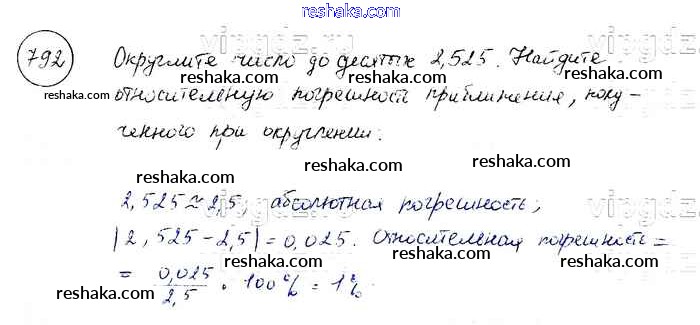 reshaka.com
792 Округлите число до десятых 2,525. Найдите
reshaka.com reshaka.com reshaka.com
относительную погрешность приближения, полу-
ченного при округлении:
reshaka.com reshaka.com reshaka.com
reshaka.com
2,525 ≈ 2,5, абсолютная погрешность;
reshaka.com reshaka.com
|2,525 - 2,5| = 0,025. Относительная погрешность =
reshaka.com reshaka.com
= 0,025/2,5 · 100% = 1%
reshaka.com reshaka.com reshaka.com